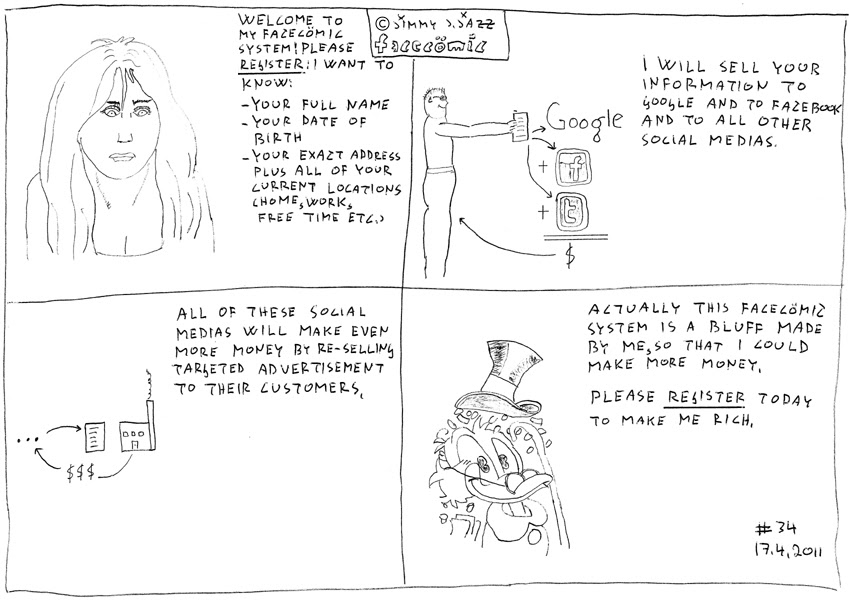 © JIMMY J.JAZZ
facecömic
WELCOME TO
MY FACECÖMIC
SYSTEM! PLEASE
REGISTER! I WANT TO
KNOW:
-YOUR FULL NAME
-YOUR DATE OF
BIRTH
-YOUR EXACT ADDRESS
PLUS ALL OF YOUR
CURRENT LOCATIONS
(HOME, WORK,
FREE TIME ETC.)
I WILL SELL YOUR
INFORMATION TO
GOOGLE AND TO FACEBOOK
AND TO ALL OTHER
SOCIAL MEDIAS.
Google
+ f
+ t
$
ALL OF THESE SOCIAL
MEDIAS WILL MAKE EVEN
MORE MONEY BY RE-SELLING
TARGETED ADVERTISEMENT
TO THEIR CUSTOMERS.
...
$$$
ACTUALLY THIS FACECÖMIC
SYSTEM IS A BLUFF MADE
BY ME, SO THAT I COULD
MAKE MORE MONEY.
PLEASE REGISTER TODAY
TO MAKE ME RICH.
#34
17.4.2011